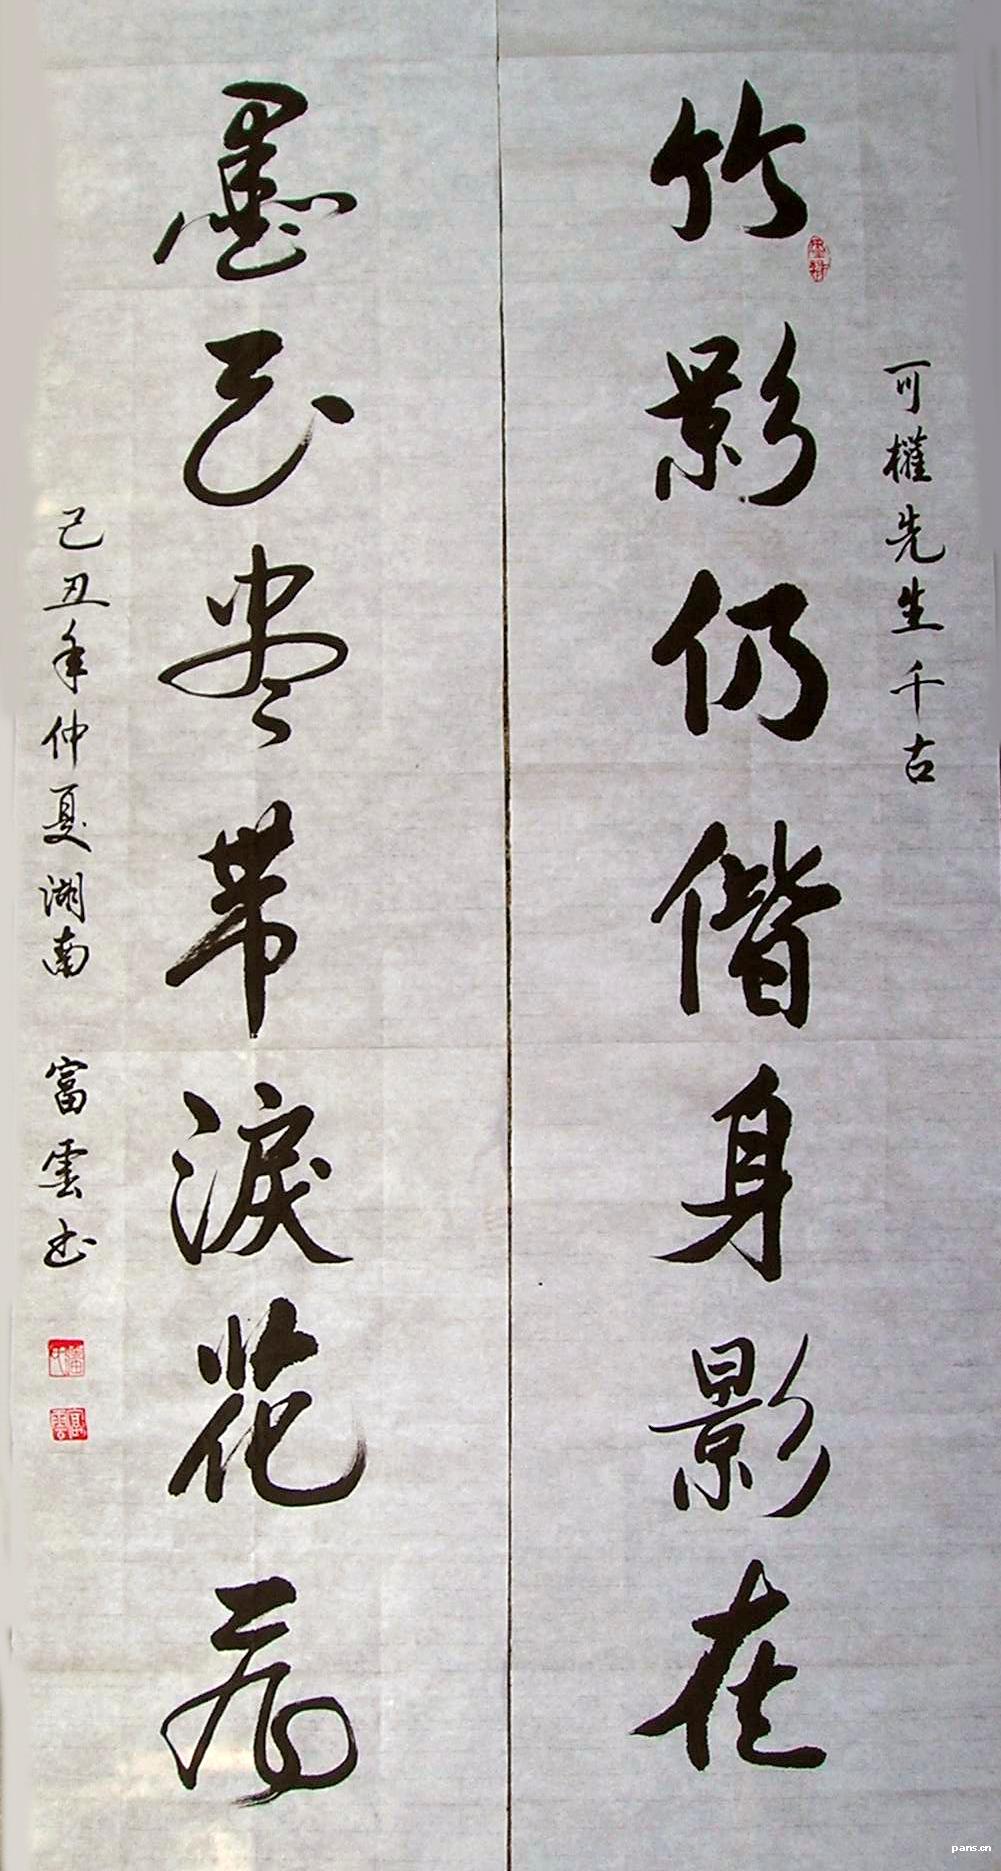 可權先生千古
竹影仍偕身影在
墨花盡帶淚花飛
己丑年仲夏湖南 富雲书
pans.cn